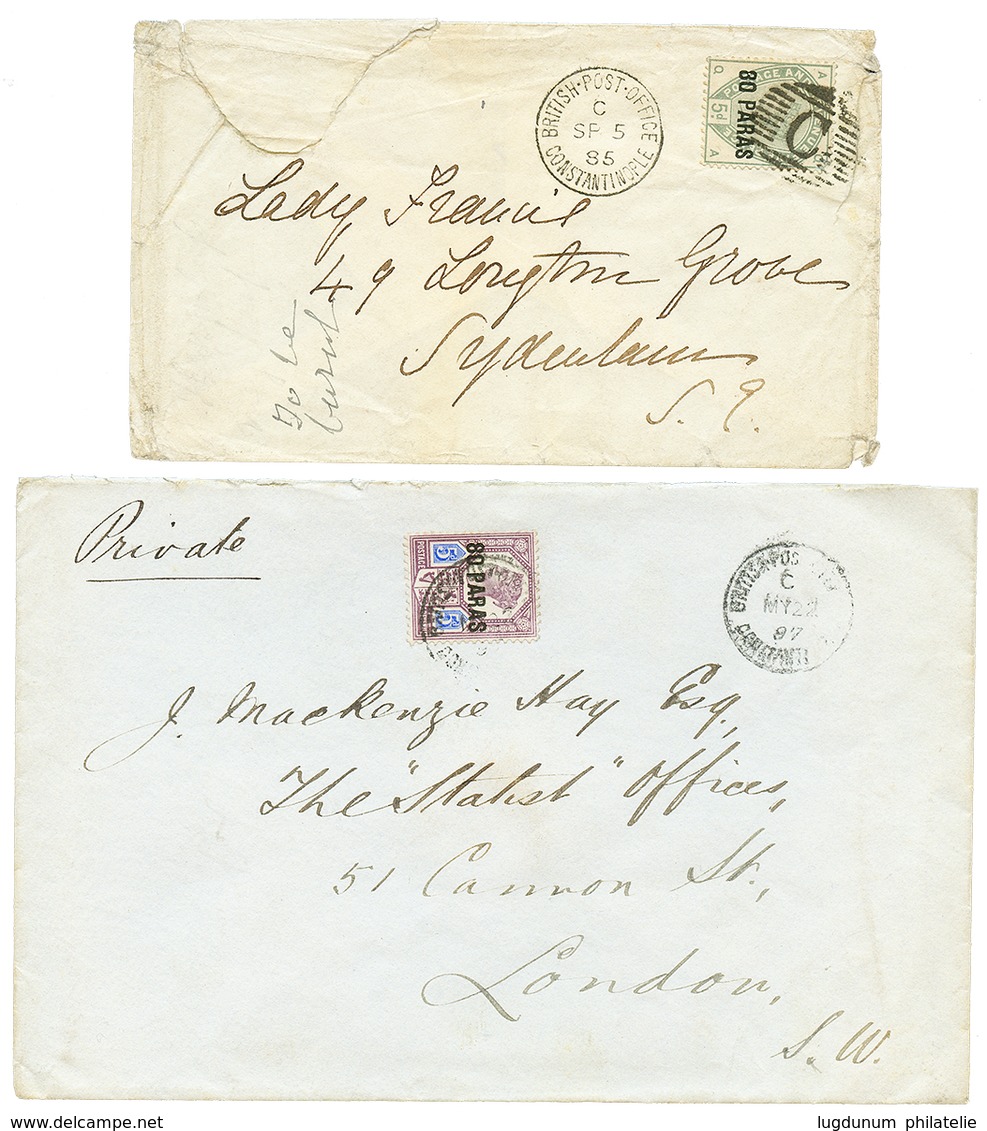 BRITISH·POST·OFFICE
C
SP 5
85
CONSTANTINOPLE
80 PARAS
POSTAGE AND
5d
Q
A
A
C
Lady Francis
49 Longton Grove
Sydenham
S.E.
To be
burnt
Private
80 PARAS
5d
5d
BRITISH POS
C
MY 22
97
CONSTANTI
J. Mackenzie Hay Esq,
The "Statist" Offices,
51 Cannon St.,
London,
S.W.
www.delcampe.net
lugdunum philatelie